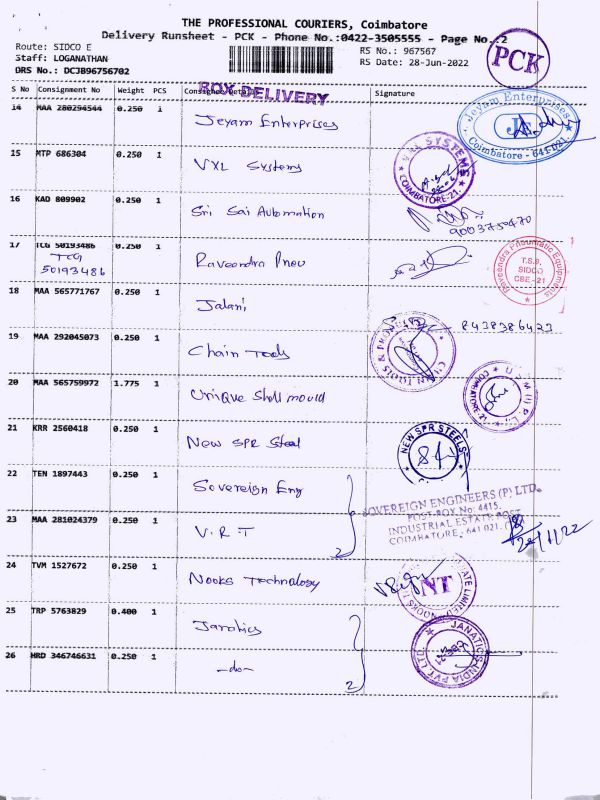 THE PROFESSIONAL COURIERS, Coimbatore
Delivery Runsheet - PCK - Phone No.:0422-3505555 - Page No.:2
PCK
Route: SIDCO E
Staff: LOGANATHAN
DRS No.: DCJB96756702
RS No.: 967567
RS Date: 28-Jun-2022
BOX DELIVERY
S No Consignment No Weight PCS Consignee Details Signature
14 MAA 280294544 0.250 1 Jeyam Enterprises
Jeyam Enterprises
JE
Coimbatore - 641 021
15 MTP 686304 0.250 1 VXL Systems
VXL SYSTEMS
COIMBATORE-21
16 KAD 809902 0.250 1 Sri Sai Automation
9003750470
17 TCG 50193486 0.250 1 Raveendra Pneu
TCG
50193486
Raveendra Pneumatic Equipments
T.S.9,
SIDCO
CBE-21
18 MAA 565771767 0.250 1 Jalani
8438386423
19 MAA 292045073 0.250 1 Chain Tools
CHAIN TOOLS & PRODUCTS
20 MAA 565759972 1.775 1 Unique Shell mould
COIMBATORE-21
21 KRR 2560418 0.250 1 New SPR Steel
NEW SPR STEELS
22 TEN 1897443 0.250 1 Sovereign Eng
SOVEREIGN ENGINEERS (P) LTD.
POST BOX No: 4415.
INDUSTRIAL ESTATE POST
COIMBATORE, 641 021.
23 MAA 281024379 0.250 1 V.R.T
2
24 TVM 1527672 0.250 1 Nooks Technology
NT
25 TRP 5763829 0.400 1 Janatics
JANATICS INDIA PVT. LTD.
CBE-21
26 HRD 346746631 0.250 1 -do-
2